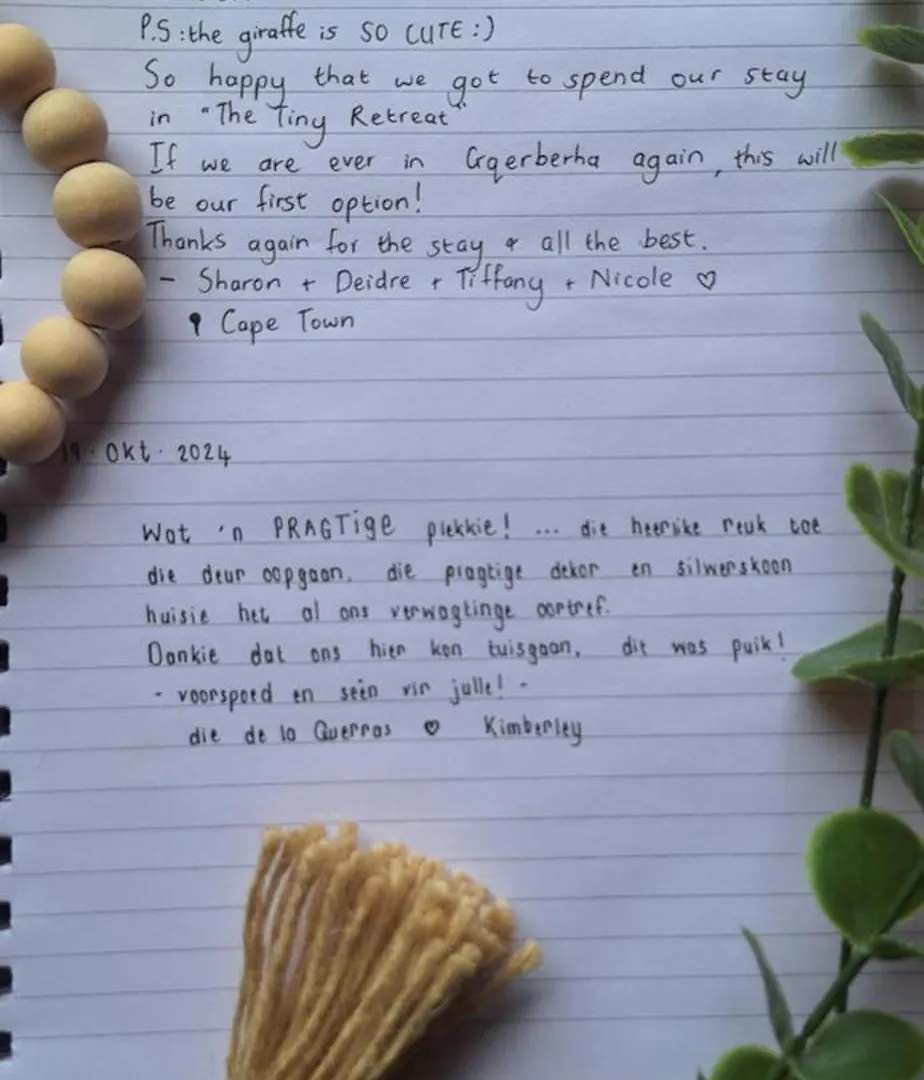 P.S : the giraffe is SO CUTE :)
So happy that we got to spend our stay
in "The Tiny Retreat"
If we are ever in Gqerberha again, this will
be our first option!
Thanks again for the stay & all the best.
- Sharon + Deidre + Tiffany + Nicole ♡
Cape Town
19. Okt. 2024
Wat 'n PRAGTige plekkie! ... die heerlike reuk toe
die deur oopgaan, die pragtige dekor en silwerskoon
huisie het al ons verwagtinge oortref.
Dankie dat ons hier kon tuisgaan, dit was puik!
- voorspoed en seën vir julle! -
die de la Querras ♡ Kimberley